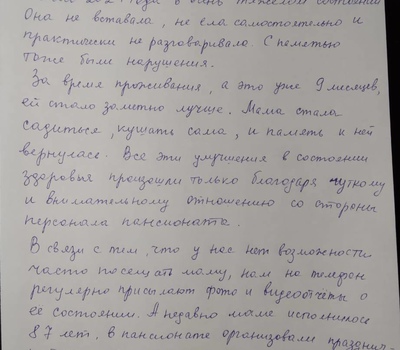 2021 года в очень тяжелом состоянии
Она не вставала, не ела самостоятельно и
практически не разговаривала. С памятью
тоже были нарушения.
За время проживания, а это уже 9 месяцев,
ей стало заметно лучше. Мама стала
садиться, кушать сама, и память к ней
вернулась. Все эти улучшения в состоянии
здоровья произошли только благодаря чуткому
и внимательному отношению со стороны
персонала пансионата.
В связи с тем, что у нас нет возможности
часто посещать маму, нам на телефон
регулярно присылают фото и видеоотчеты о
ее состоянии. А недавно маме исполнилось
87 лет. В пансионате организовали празднич-